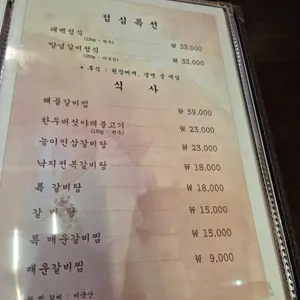 점심특선
태백정식 ₩ 33,000
양념갈비정식 ₩ 33,000
* 후식 : 된장찌개, 냉면 중 택일
식 사
해물갈비찜 ₩ 59,000
한우버섯야채불고기 ₩ 23,000
능이인삼갈비탕 ₩ 23,000
낙지전복갈비탕 ₩ 18,000
특 갈비탕 ₩ 18,000
갈 비 탕 ₩ 15,000
특 매운갈비찜 ₩ 15,000
매운갈비찜 ₩ 9,000